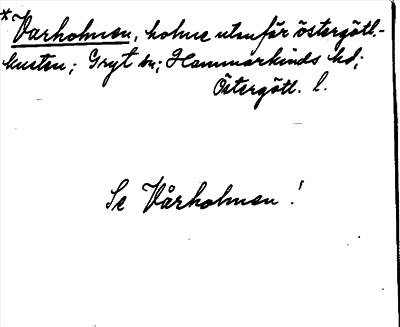 *Varholmen, holme utanför östergötl.-
kusten; Gryt sn; Hammarkinds hd;
Östergötl. l.
Se Vårholmen!